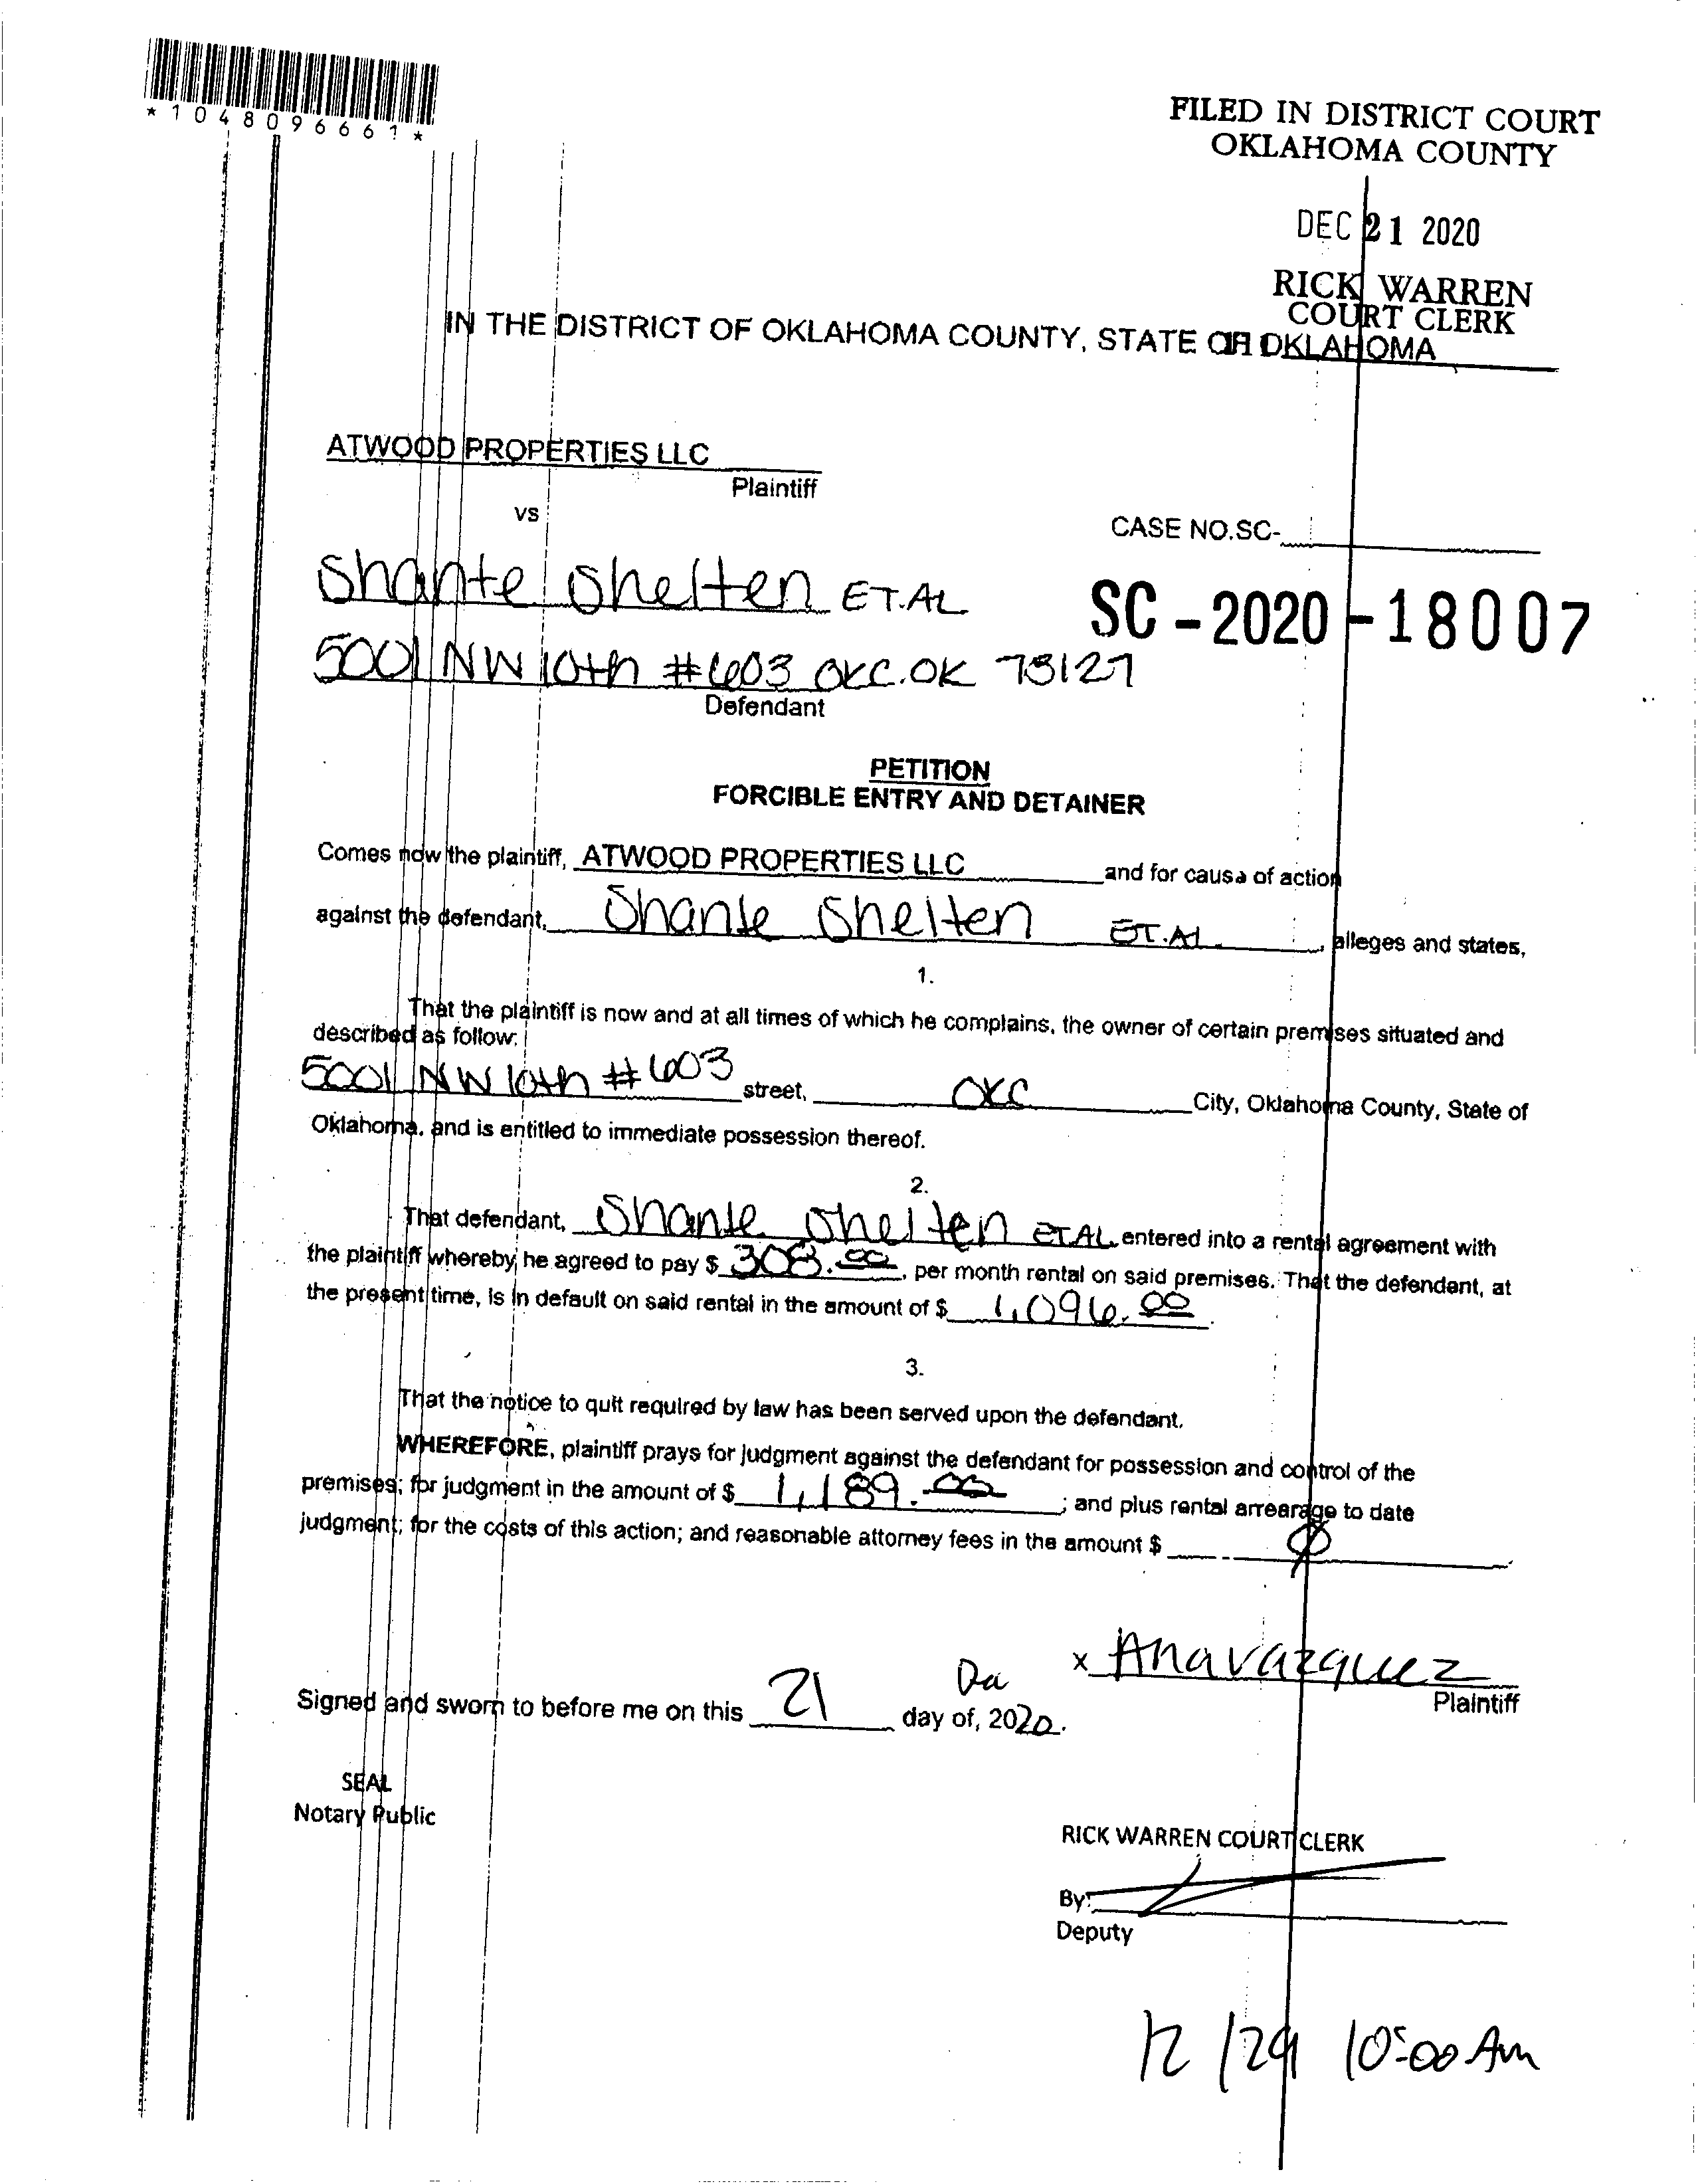 *1048096661*
FILED IN DISTRICT COURT
OKLAHOMA COUNTY
DEC 21 2020
RICK WARREN
COURT CLERK
IN THE DISTRICT OF OKLAHOMA COUNTY, STATE OF OKLAHOMA
ATWOOD PROPERTIES LLC
Plaintiff
vs
CASE NO.SC-
Shante Shelten ET.AL
SC-2020-18007
5001 NW 10th #603 OKC.OK 73127
Defendant
PETITION
FORCIBLE ENTRY AND DETAINER
Comes now the plaintiff, ATWOOD PROPERTIES LLC and for causa of action
against the defendant, Shante Shelten ET.AL, alleges and states,
1.
That the plaintiff is now and at all times of which he complains, the owner of certain premises situated and
described as follow:
5001 NW 10th #603 street, OKC City, Oklahoma County, State of
Oklahoma, and is entitled to immediate possession thereof.
2.
That defendant, Shante Shelten ET AL entered into a rental agreement with
the plaintiff whereby he agreed to pay $ 308.00, per month rental on said premises. That the defendant, at
the present time, is in default on said rental in the amount of $ 1,096.00.
3.
That the notice to quit required by law has been served upon the defendant.
WHEREFORE, plaintiff prays for judgment against the defendant for possession and control of the
premises; for judgment in the amount of $ 1,189.00; and plus rental arrearage to date
judgment; for the costs of this action; and reasonable attorney fees in the amount $ Ø
x Ana vazquez
Plaintiff
Signed and sworn to before me on this 21 day of, 2020.
SEAL
Notary Public
RICK WARREN COURT CLERK
By:
Deputy
12/29 10:00 Am